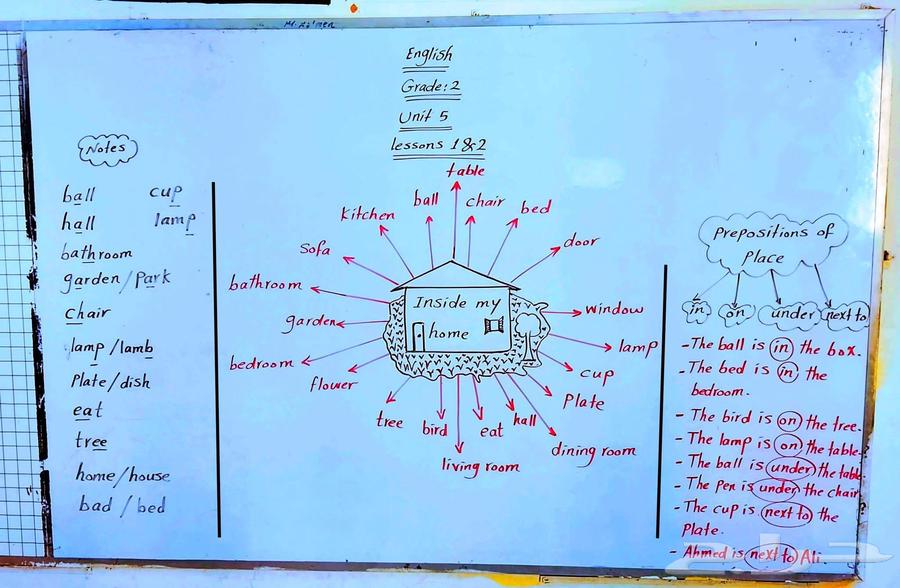 English
Grade: 2
Unit 5
lessons 1&2
Notes
ball cup
hall lamp
bathroom
garden/Park
Chair
lamp/lamb
Plate/dish
eat
tree
home/house
bad/bed
table
ball
chair
Kitchen
bed
Sofa
door
bathroom
Inside my
home
window
garden
lamp
bedroom
cup
flower
Plate
tree
bird
eat
hall
dining room
living room
Prepositions of
Place
in
on
under
next to
-The ball is in the box.
-The bed is in the
bedroom.
- The bird is on the tree.
- The lamp is on the table.
- The ball is under the table
- The pen is under the chair
- The cup is next to the
Plate.
- Ahmed is next to Ali.
حراج